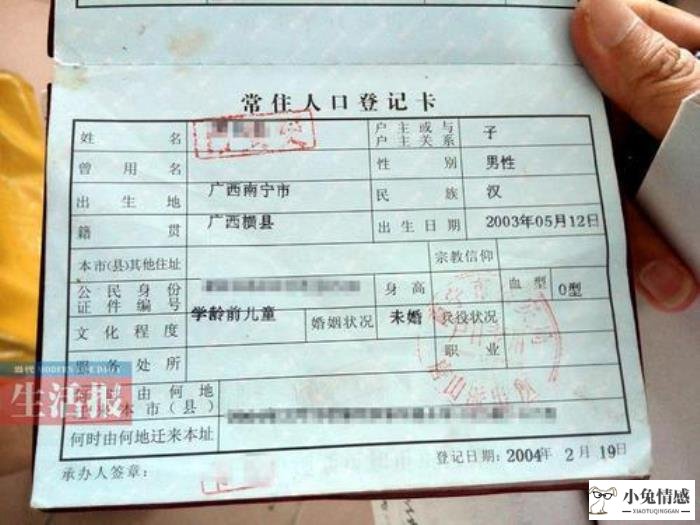 常住人口登记卡
姓名 户主或与户主关系 子
曾用名 性别 男性
出生地 广西南宁市 民族 汉
籍贯 广西横县 出生日期 2003年05月12日
本市(县)其他住址 宗教信仰
公民身份证件编号 身高 血型 O型
文化程度 学龄前儿童 婚姻状况 未婚 兵役状况
服务处所 职业
何时由何地
本市(县)
何时由何地迁来本址
承办人签章: 登记日期:2004年2月19日
当代 MODERN LIFE DAILY
生活报
小兔情感
XIAOTUQINGGAN